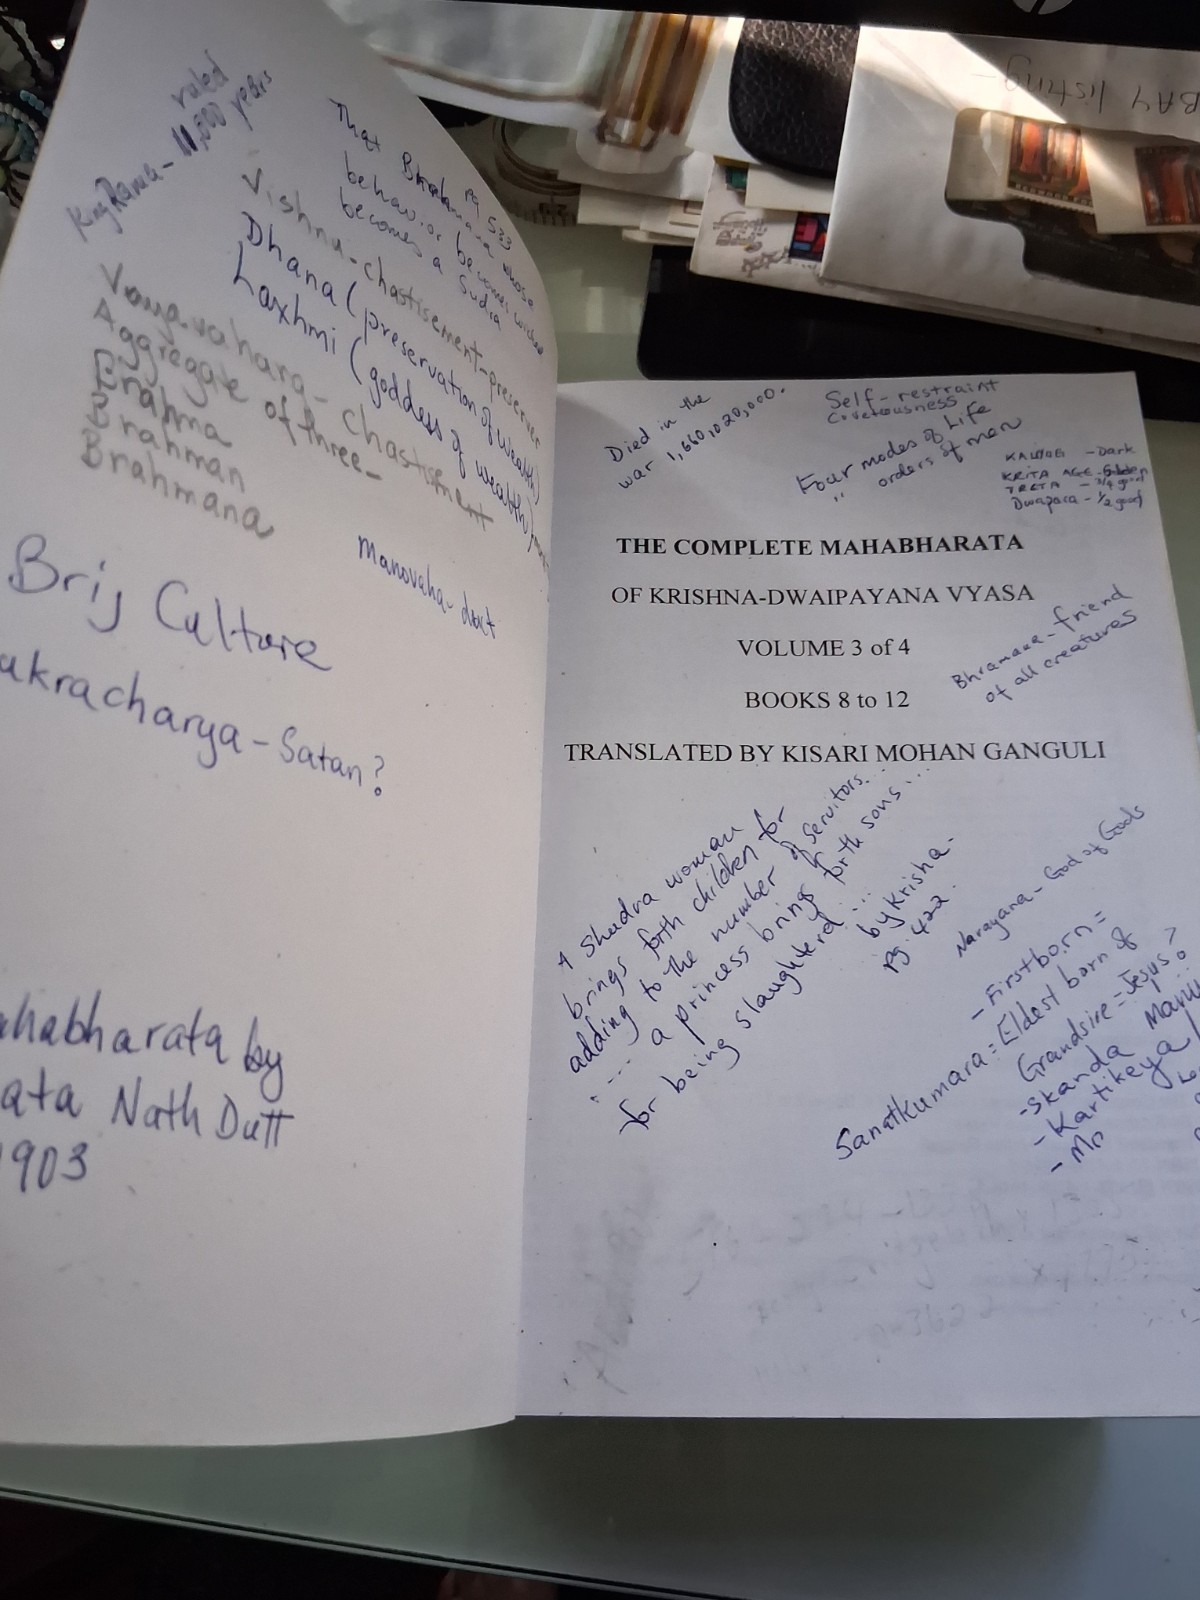 King Rama - 11,000 years
ruled
That Brahmana whose pg 533
behavior becomes wicked
becomes a Sudra
Vishnu - chastisement - preserver
Dhana (preservation of wealth)
Laxhmi (goddess of wealth)
Vyavahara - Chastisement
Aggregate of three -
Brahma
Brahman
Brahmana
Manovaha - duct
Brij Culture
ukracharya - Satan?
ahabharata by
ata Nath Dutt
1903
Died in the
war 1,660,020,000.
Self-restraint
Covetousness
Four modes of Life
" orders of men
KALIYUG - Dark
KRITA AGE - Golden
TRETA - 3/4 good
Dwapara - 1/2 good
THE COMPLETE MAHABHARATA
OF KRISHNA-DWAIPAYANA VYASA
VOLUME 3 of 4
BOOKS 8 to 12
TRANSLATED BY KISARI MOHAN GANGULI
Bhramana - friend
of all creatures
A Shudra woman
brings forth children for
adding to the number of servitors...
... a princess brings forth sons ...
for being slaughterd ...
by Krisha.
pg. 422.
Narayana - God of Gods
- Firstborn =
Sanatkumara = Eldest born of
Grandsire = Jesus?
- Skanda
- Kartikeya
BAY listing -